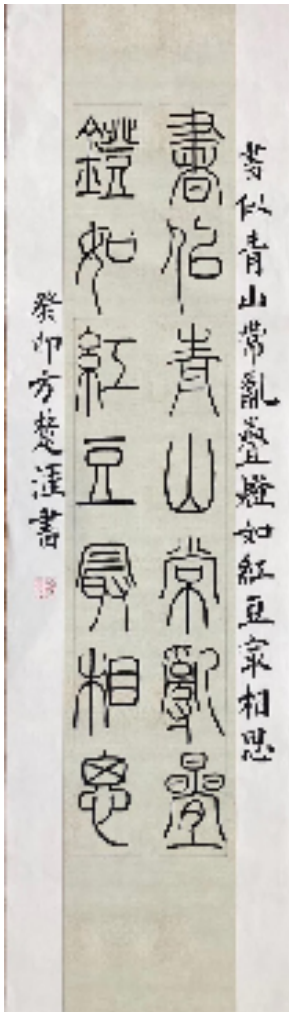 書似青山常亂疊
鐙如紅豆最相思
書似青山常亂疊燈如紅豆最相思
癸卯方楚涯書